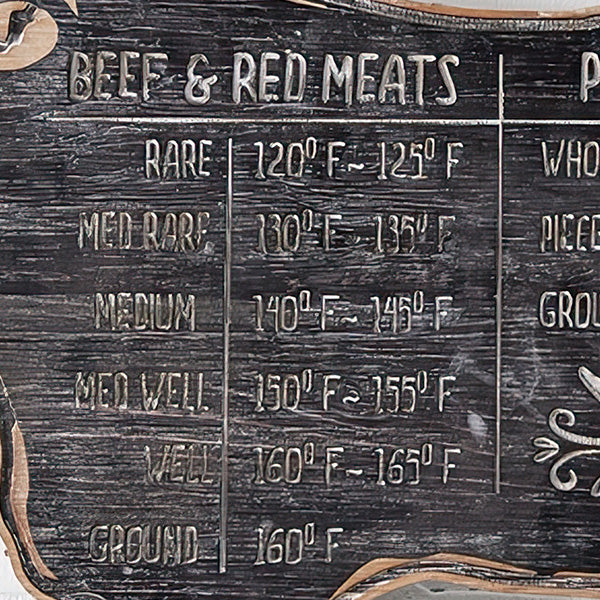 BEEF & RED MEATS
RARE 120° F ~ 125° F
MED RARE 130° F ~ 135° F
MEDIUM 140° F ~ 145° F
MED WELL 150° F ~ 155° F
WELL 160° F ~ 165° F
GROUND 160° F
P
WHO
PIECE
GROU